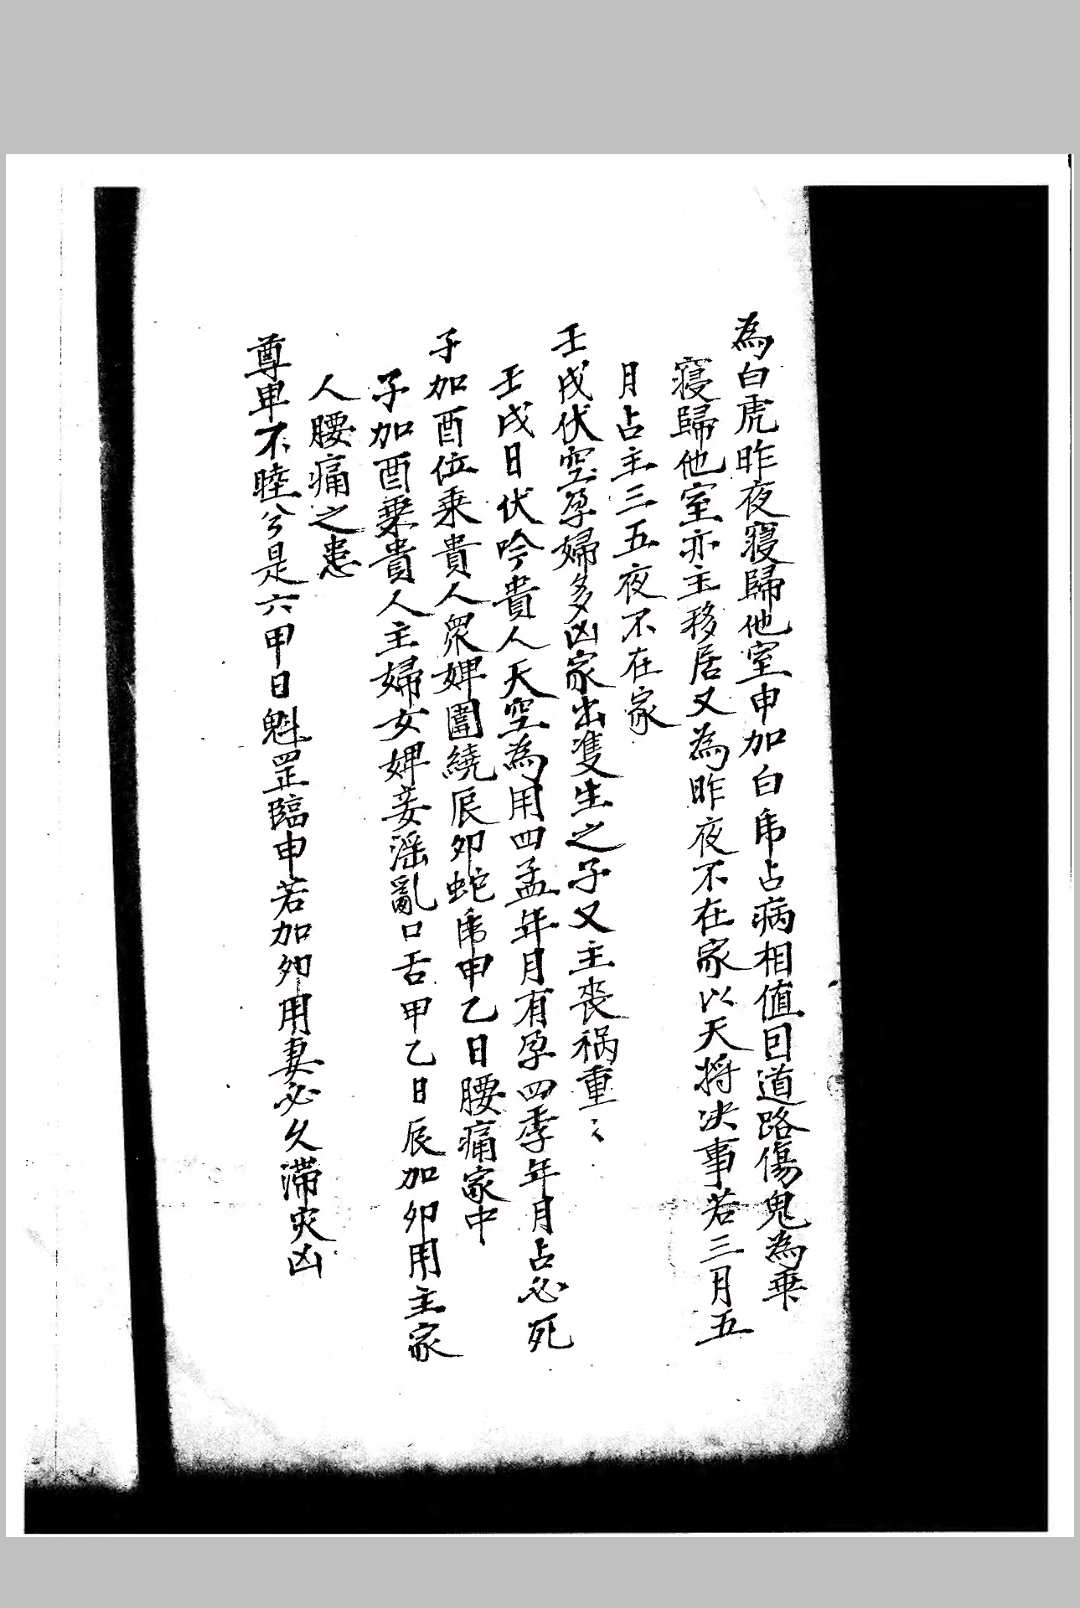 為白虎昨夜寢歸他室申加白乕占病相值回道路傷鬼為乗
寢歸他室亦主移居又為昨夜不在家以天将决事若三月五
月占主三五夜不在家
壬戌伏空孕婦多凶家出隻生之子又主丧祸重〻
壬戌日伏吟貴人天空為用四孟年月有孕四季年月占必死
子加酉位乗貴人眾婢圍繞辰夘蛇乕甲乙日腰痛家中
子加酉乗貴人主婦女婢妾滛亂口舌甲乙日辰加夘用主家
人腰痛之患
尊卑不睦兮是六甲日魁罡臨申若加夘用妻必久滞灾凶